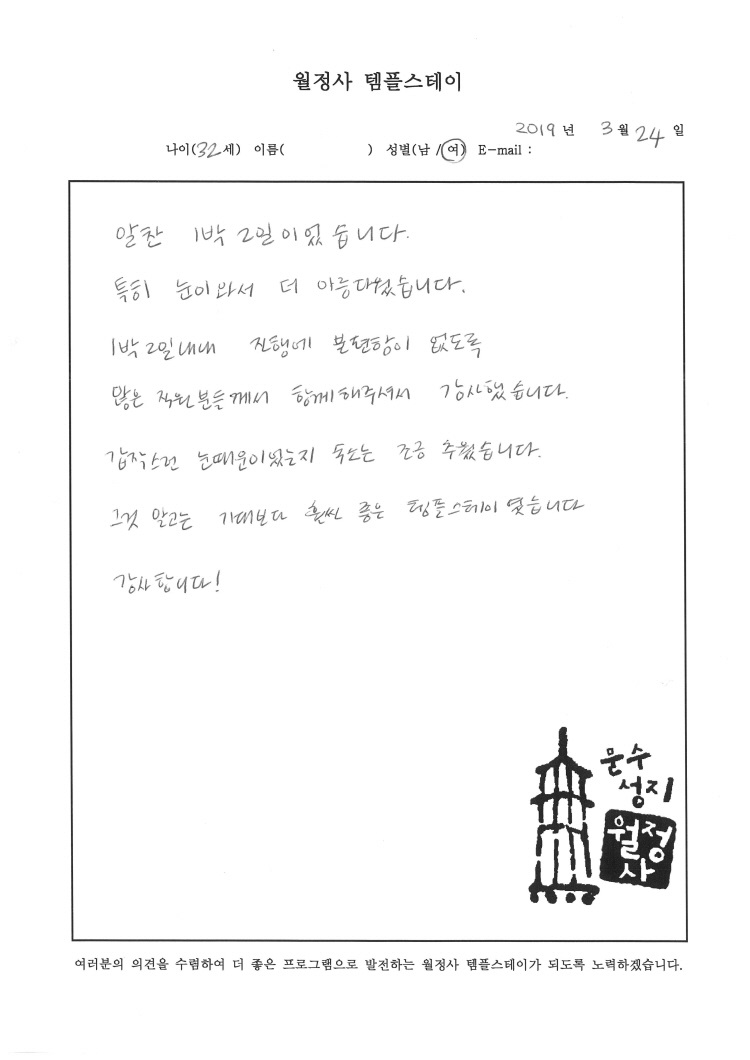 월정사 템플스테이
2019 년 3 월 24 일
나이(32세) 이름( ) 성별(남 /여) E-mail :
알찬 1박 2일이었습니다.
특히 눈이와서 더 아름다웠습니다.
1박 2일내내 진행에 불편함이 없도록
많은 직원분들께서 함께해주셔서 감사했습니다.
갑작스런 눈때문이었는지 숙소는 조금 추웠습니다.
그것 말고는 기대보다 훨씬 좋은 템플스테이 였습니다
감사합니다!
문수
성지
월정
사
여러분의 의견을 수렴하여 더 좋은 프로그램으로 발전하는 월정사 템플스테이가 되도록 노력하겠습니다.